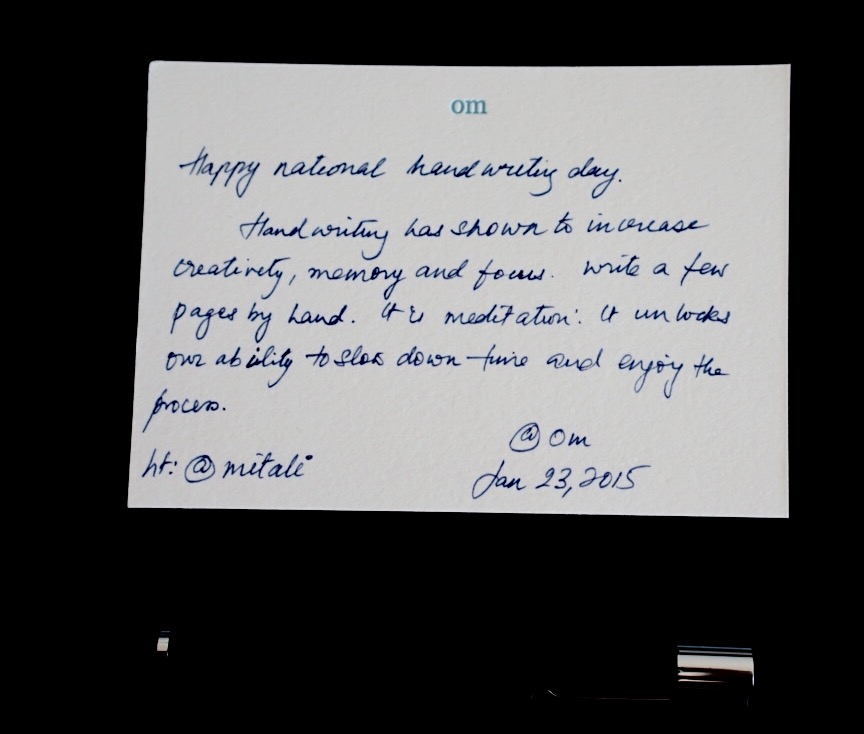 om
Happy national handwriting day.
Handwriting has shown to increase
creativity, memory and focus. Write a few
pages by hand. It is meditation. It unlocks
our ability to slow down time and enjoy the
process.
@om
ht: @mitali
Jan 23, 2015